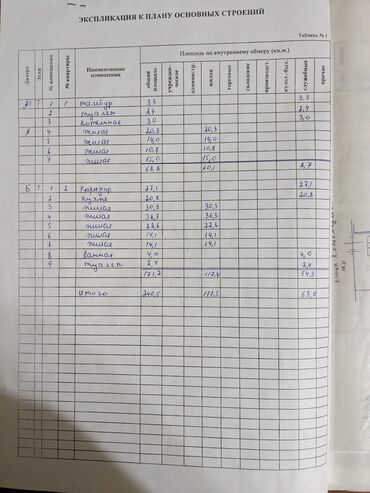 ЭКСПЛИКАЦИЯ К ПЛАНУ ОСНОВНЫХ СТРОЕНИЙ
Таблица № 1
Литера Этаж № помещения № квартиры Наименование помещения Площадь по внутреннему обмеру (кв.м.)
общая площадь учрежденческие администр. жилая торговые складские производст. культ.-быт. служебные прочие
А1 I 1 1 тамбур 3,3 3,3
2 туалет 2,4 2,4
3 котельная 3,0 3,0
А 4 жилая 20,3 20,3
5 жилая 14,0 14,0
6 жилая 10,8 10,8
7 жилая 15,0 15,0
68,8 60,1 8,7
Б I 1 2 коридор 27,1 27,1
2 кухня 20,8 20,8
3 жилая 30,3 30,3
4 жилая 36,3 36,3
5 жилая 22,6 22,6
6 жилая 14,1 14,1
7 жилая 14,1 14,1
8 ванная 4,0 4,0
9 туалет 2,4 2,4
171,7 117,4 54,3
итого 240,5 177,5 63,0